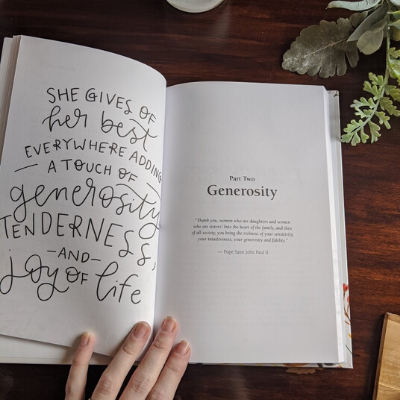 SHE GIVES OF
her best
EVERYWHERE ADDING
A TOUCH OF
generosity
TENDERNESS,
AND
joy OF life
Part Two
Generosity
"Thank you, women who are daughters and women
who are sisters! Into the heart of the family, and then
of all society, you bring the richness of your sensitivity,
your intuitiveness, your generosity and fidelity."
— Pope Saint John Paul II